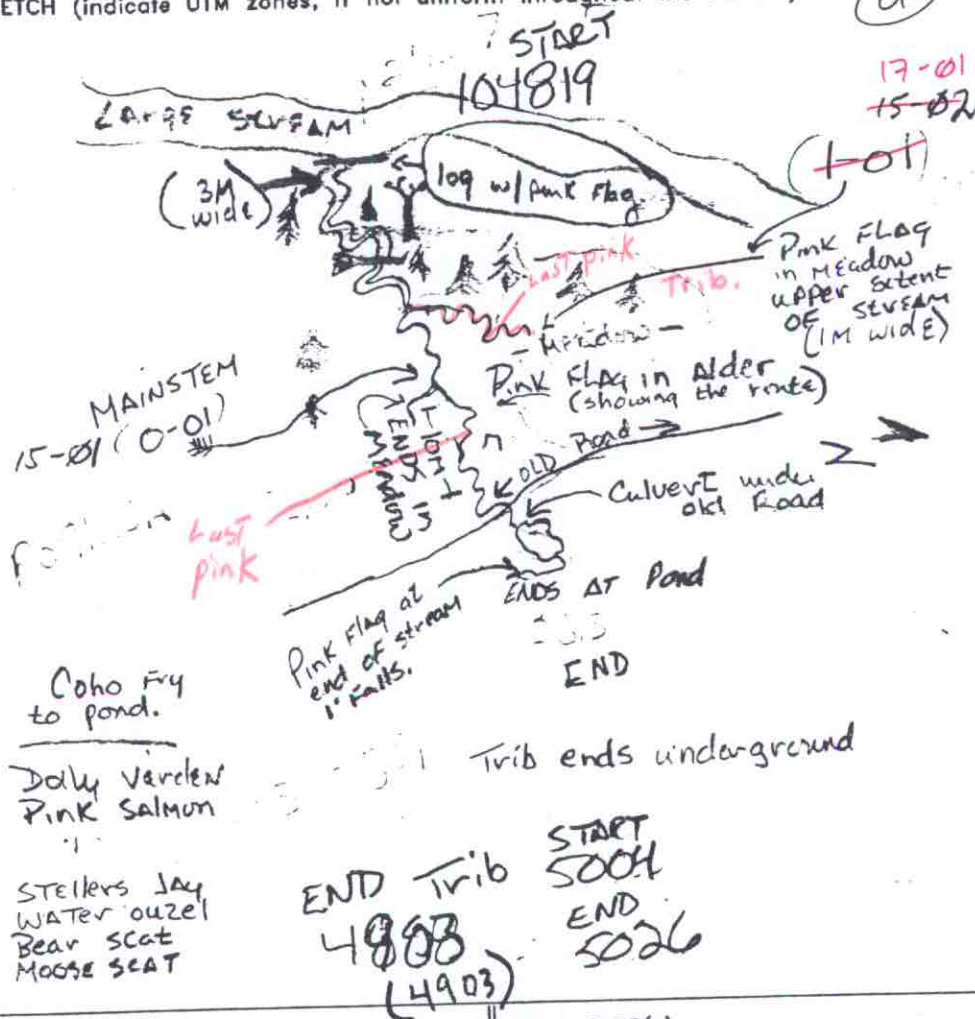 ETCH (indicate UTM zones, if not uniform throughout
START
104819
17-01
15-02
(1-01)
LARGE STREAM
(3M wide)
log w/ pink Flag.
Last pink
Trib.
Pink FLAG
in MEADOW
upper extent
OF STREAM
(1M WIDE)
- MEADOW -
MAINSTEM
15-Ø1 (0-01)
Pink FLAG in Alder
(showing the route)
10M I
ENDS in
MEADOW
OLD Road
Culvert under
old Road
Last
pink
Pink Flag at
end of stream
1' Falls.
ENDS AT Pond
END
Coho Fry
to pond.
Dolly Varden
Pink SALMON
Trib ends underground
STEllers JAY
WATer ouzel
Bear scat
MOOSE SCAT
END Trib
4903
(4903)
START
5004
END
5026